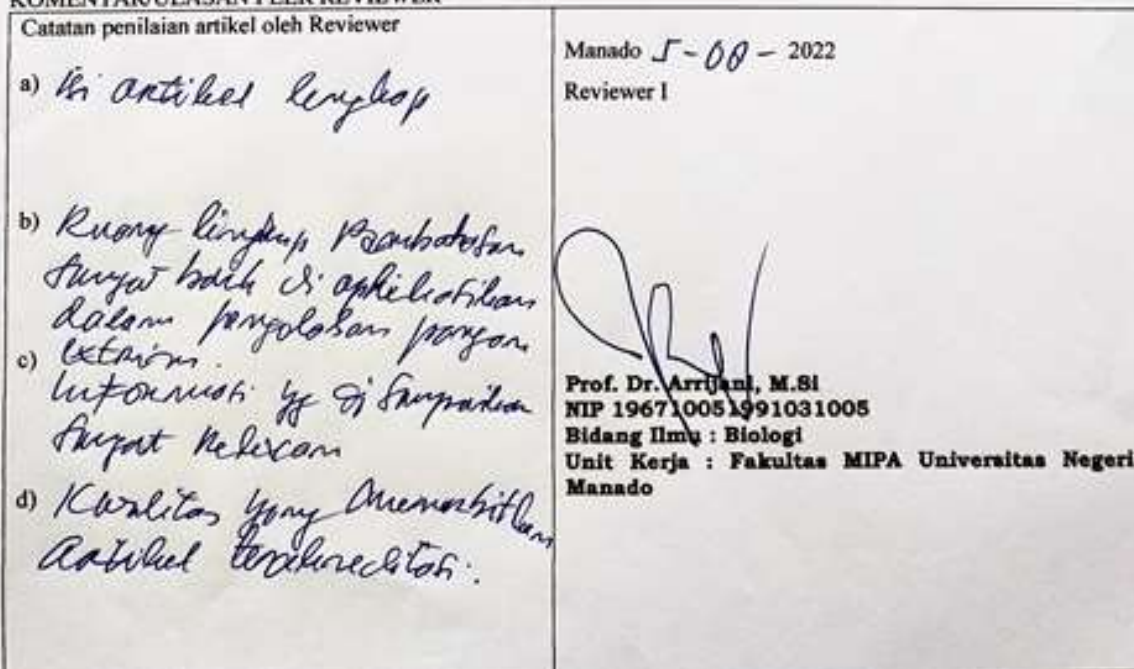 KOMENTAR/ULASAN PEER REVIEWER
Catatan penilaian artikel oleh Reviewer
a) Isi artikel lengkap
b) Ruang lingkup Pembahasan
sangat baik di aplikasikan
dalam pengolahan pangan
c)
Informasi yg di sampaikan
sangat Relevan
d) Kualitas yang menerbitkan
artikel terakreditasi.
Manado 5 - 2022
Reviewer I
Prof. Dr. Arrijani, M.Si
NIP 196710051991031005
Bidang Ilmu : Biologi
Unit Kerja : Fakultas MIPA Universitas Negeri
Manado